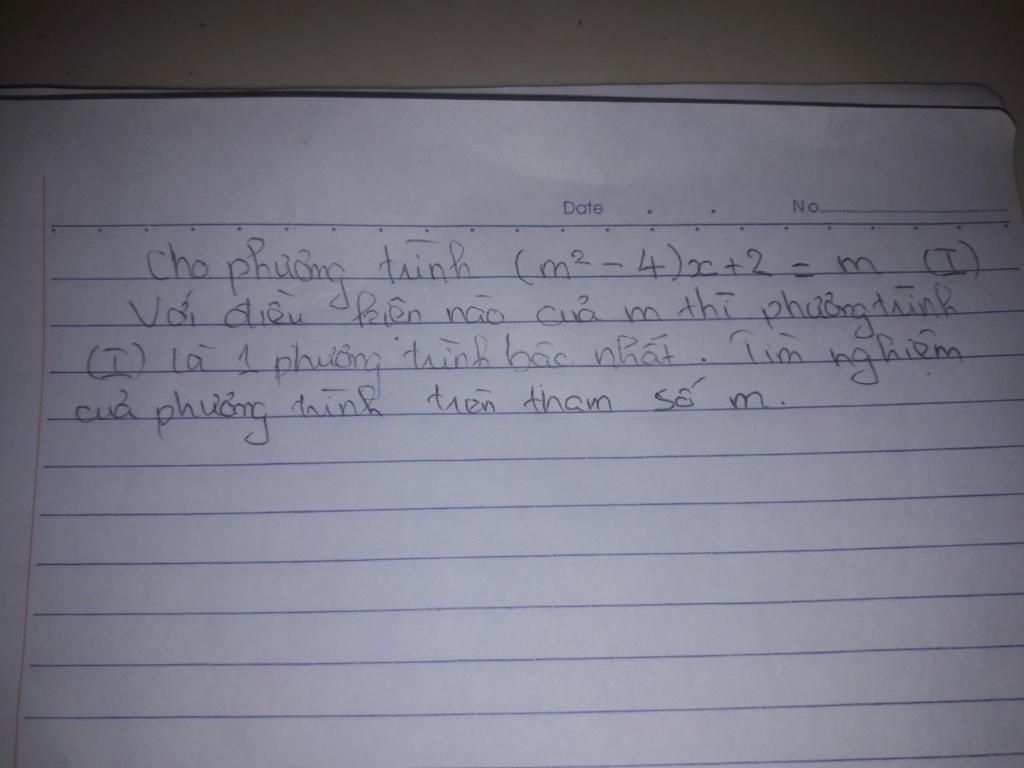 Date . . No
Cho phương trình (m² - 4)x + 2 = m (I)
Với điều kiện nào của m thì phương trình
(I) là 1 phương trình bậc nhất. Tìm nghiệm
của phương trình trên tham số m.